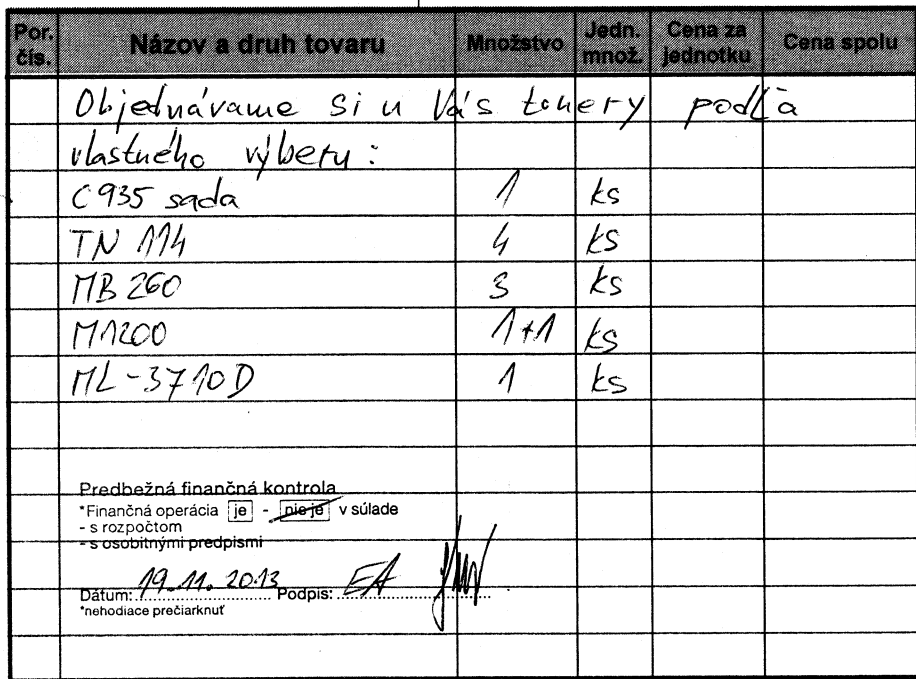 Por. čís. Názov a druh tovaru Množstvo Jedn. množ. Cena za jednotku Cena spolu
Objednávame si u Vás tonery podľa
vlastného výberu:
C935 sada 1 ks
TN 114 4 ks
MB 260 3 ks
M1200 1+1 ks
ML-3710D 1 ks
Predbežná finančná kontrola
*Finančná operácia je - nie je v súlade
- s rozpočtom
- s osobitnými predpismi
Dátum: 19.11.2013 Podpis: EA
*nehodiace prečiarknuť